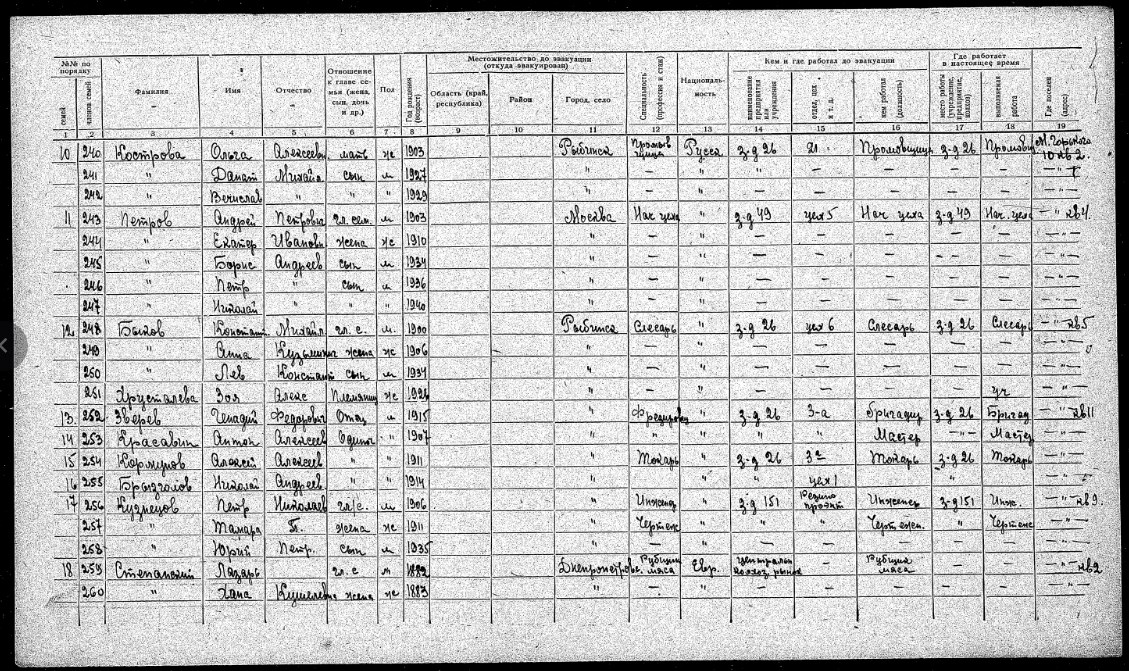 №№ по порядку Отношение к главе семьи (жена, сын, дочь и др.) Местожительство до эвакуации (откуда эвакуирован) Кем и где работал до эвакуации Где работает в настоящее время
семей членов семей Фамилия Имя Отчество Пол Год рождения (возраст) Область (край, республика) Район Город, село Специальность (профессия и стаж) Националь-ность наименование предприятия или учреждения отдел, цех и т. д. кем работал (должность) место работы (учреждение, предприятие, колхоз) выполняемая работа Где поселен (адрес)
1 2 3 4 5 6 7 8 9 10 11 12 13 14 15 16 17 18 19
10 240 Кострова Ольга Алексеевн мать ж 1903 Рыбинск Русск з-д 26 Промовщица з-д 26 М. Горького 10 кв 2.
241 " Михайл сын м 1927 " — " " — — — — — " —
242 " " " 1929 " — " — — — — — — " —
11 243 Петров Андрей Петрович гл. сем. м 1903 Москва Нач цеха " з-д 49 цех 5 Нач цеха з-д 49 Нач. цеха — " — кв 4.
244 " Екатер Ивановн жена ж 1910 " — " — — — — — — " —
245 " Борис Андреев сын м 1934 " — " — — — — — — " —
246 " Петр " сын м 1936 " — " — — — — — — " —
247 " Николай " " " 1940 " — " — — — — — — " —
12 248 Быков Констант Михайл гл. с. м. 1900 Рыбинск Слесарь " з-д 26 цех 6 Слесарь з-д 26 Слесарь — " — кв 5
249 " Анна Кузьминич жена ж 1906 " — " — — — — — — " —
250 " Лев Констант сын м 1934 " — " — — — — — — " —
251 Хрусталева Зоя Алекс Племянниц ж 1926 " — " — — — — уч — " —
13. 252 Зверев Генадий Федорович Отец м 1915 " " з-д 26 3-а бригадир з-д 26 Бригад — " — кв 11
14 253 Красавин Антон Алексеев Одинок " 1907 " " " " " Мастер — " — Мастер — " —
15 254 Кормунов Алексей Алексеев " " 1911 " Токарь " з-д 26 3а Токарь з-д 26 Токарь — " —
16 255 Брызгалов Николай Андреев " " 1914 " " " " цех 1 " " " — " —
17 256 Кузнецов Петр Николаев гл/с. м 1906 " Инженер " з-д 151 Инженер з-д 151 Инж. — " — кв 9.
257 " Тамара П. жена ж 1911 " Чертеж " " " Чертежн. " Чертеж — " —
258 " Юрий Петр. сын м 1935 " — " — — — — — — " —
18 259 Степанский Лазарь гл. с м 1882 Днепропетровс. Рубщик мяса Евр. Центральн колхоз. рынок — Рубщик мяса — — — " — кв 2
260 " Хана жена ж 1883 " — " — — — — — — " —